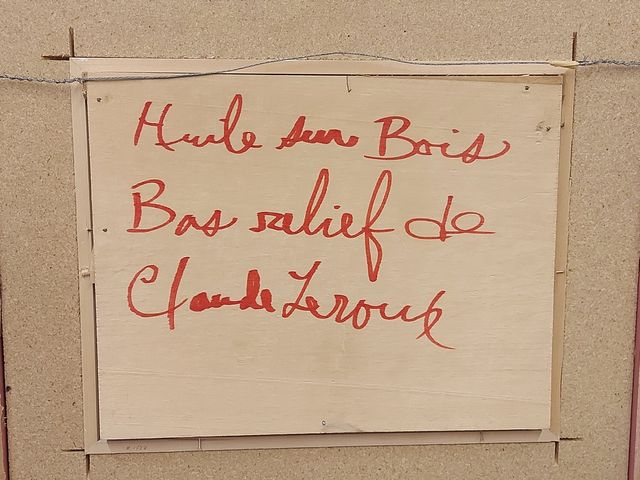 Huile sur Bois
Bas relief de
Claude Leroux